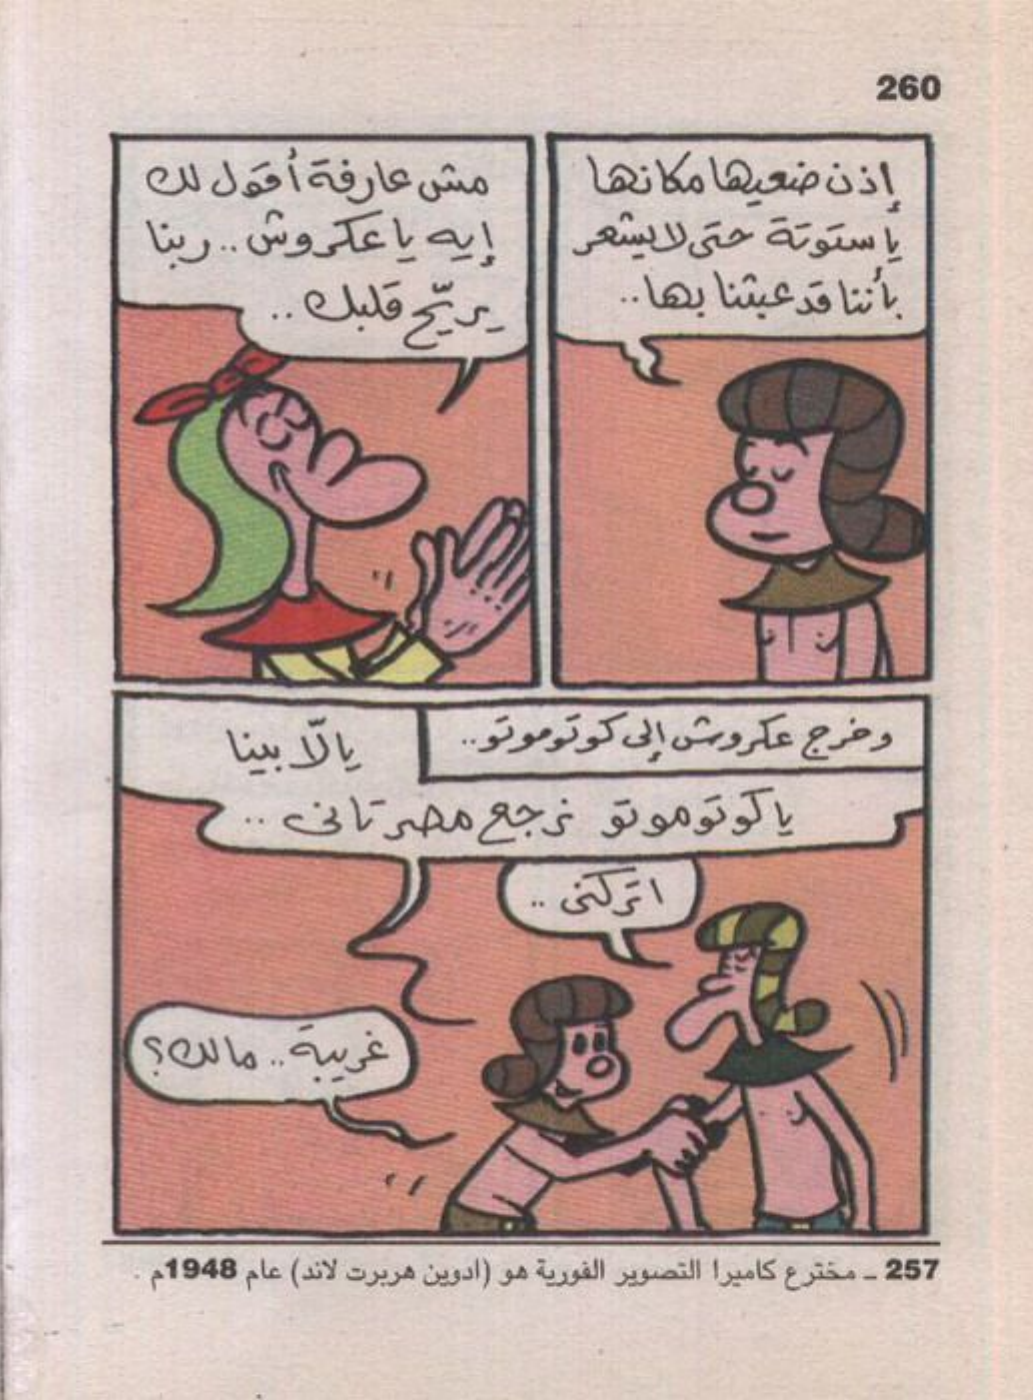 260
إذن ضعيها مكانها
يا ستوتة حتى لا يشعر
بأننا قد عبثنا بها..
مش عارفة أقول لك
إيه يا عكروش.. ربنا
يريّح قلبك..
وخرج عكروش إلى كوتوموتو..
يالّا بينا
يا كوتوموتو نرجع مصر تانى..
اتركنى..
غريبة.. مالك؟
257 ــ مخترع كاميرا التصوير الفورية هو (ادوين هربرت لاند) عام 1948م .